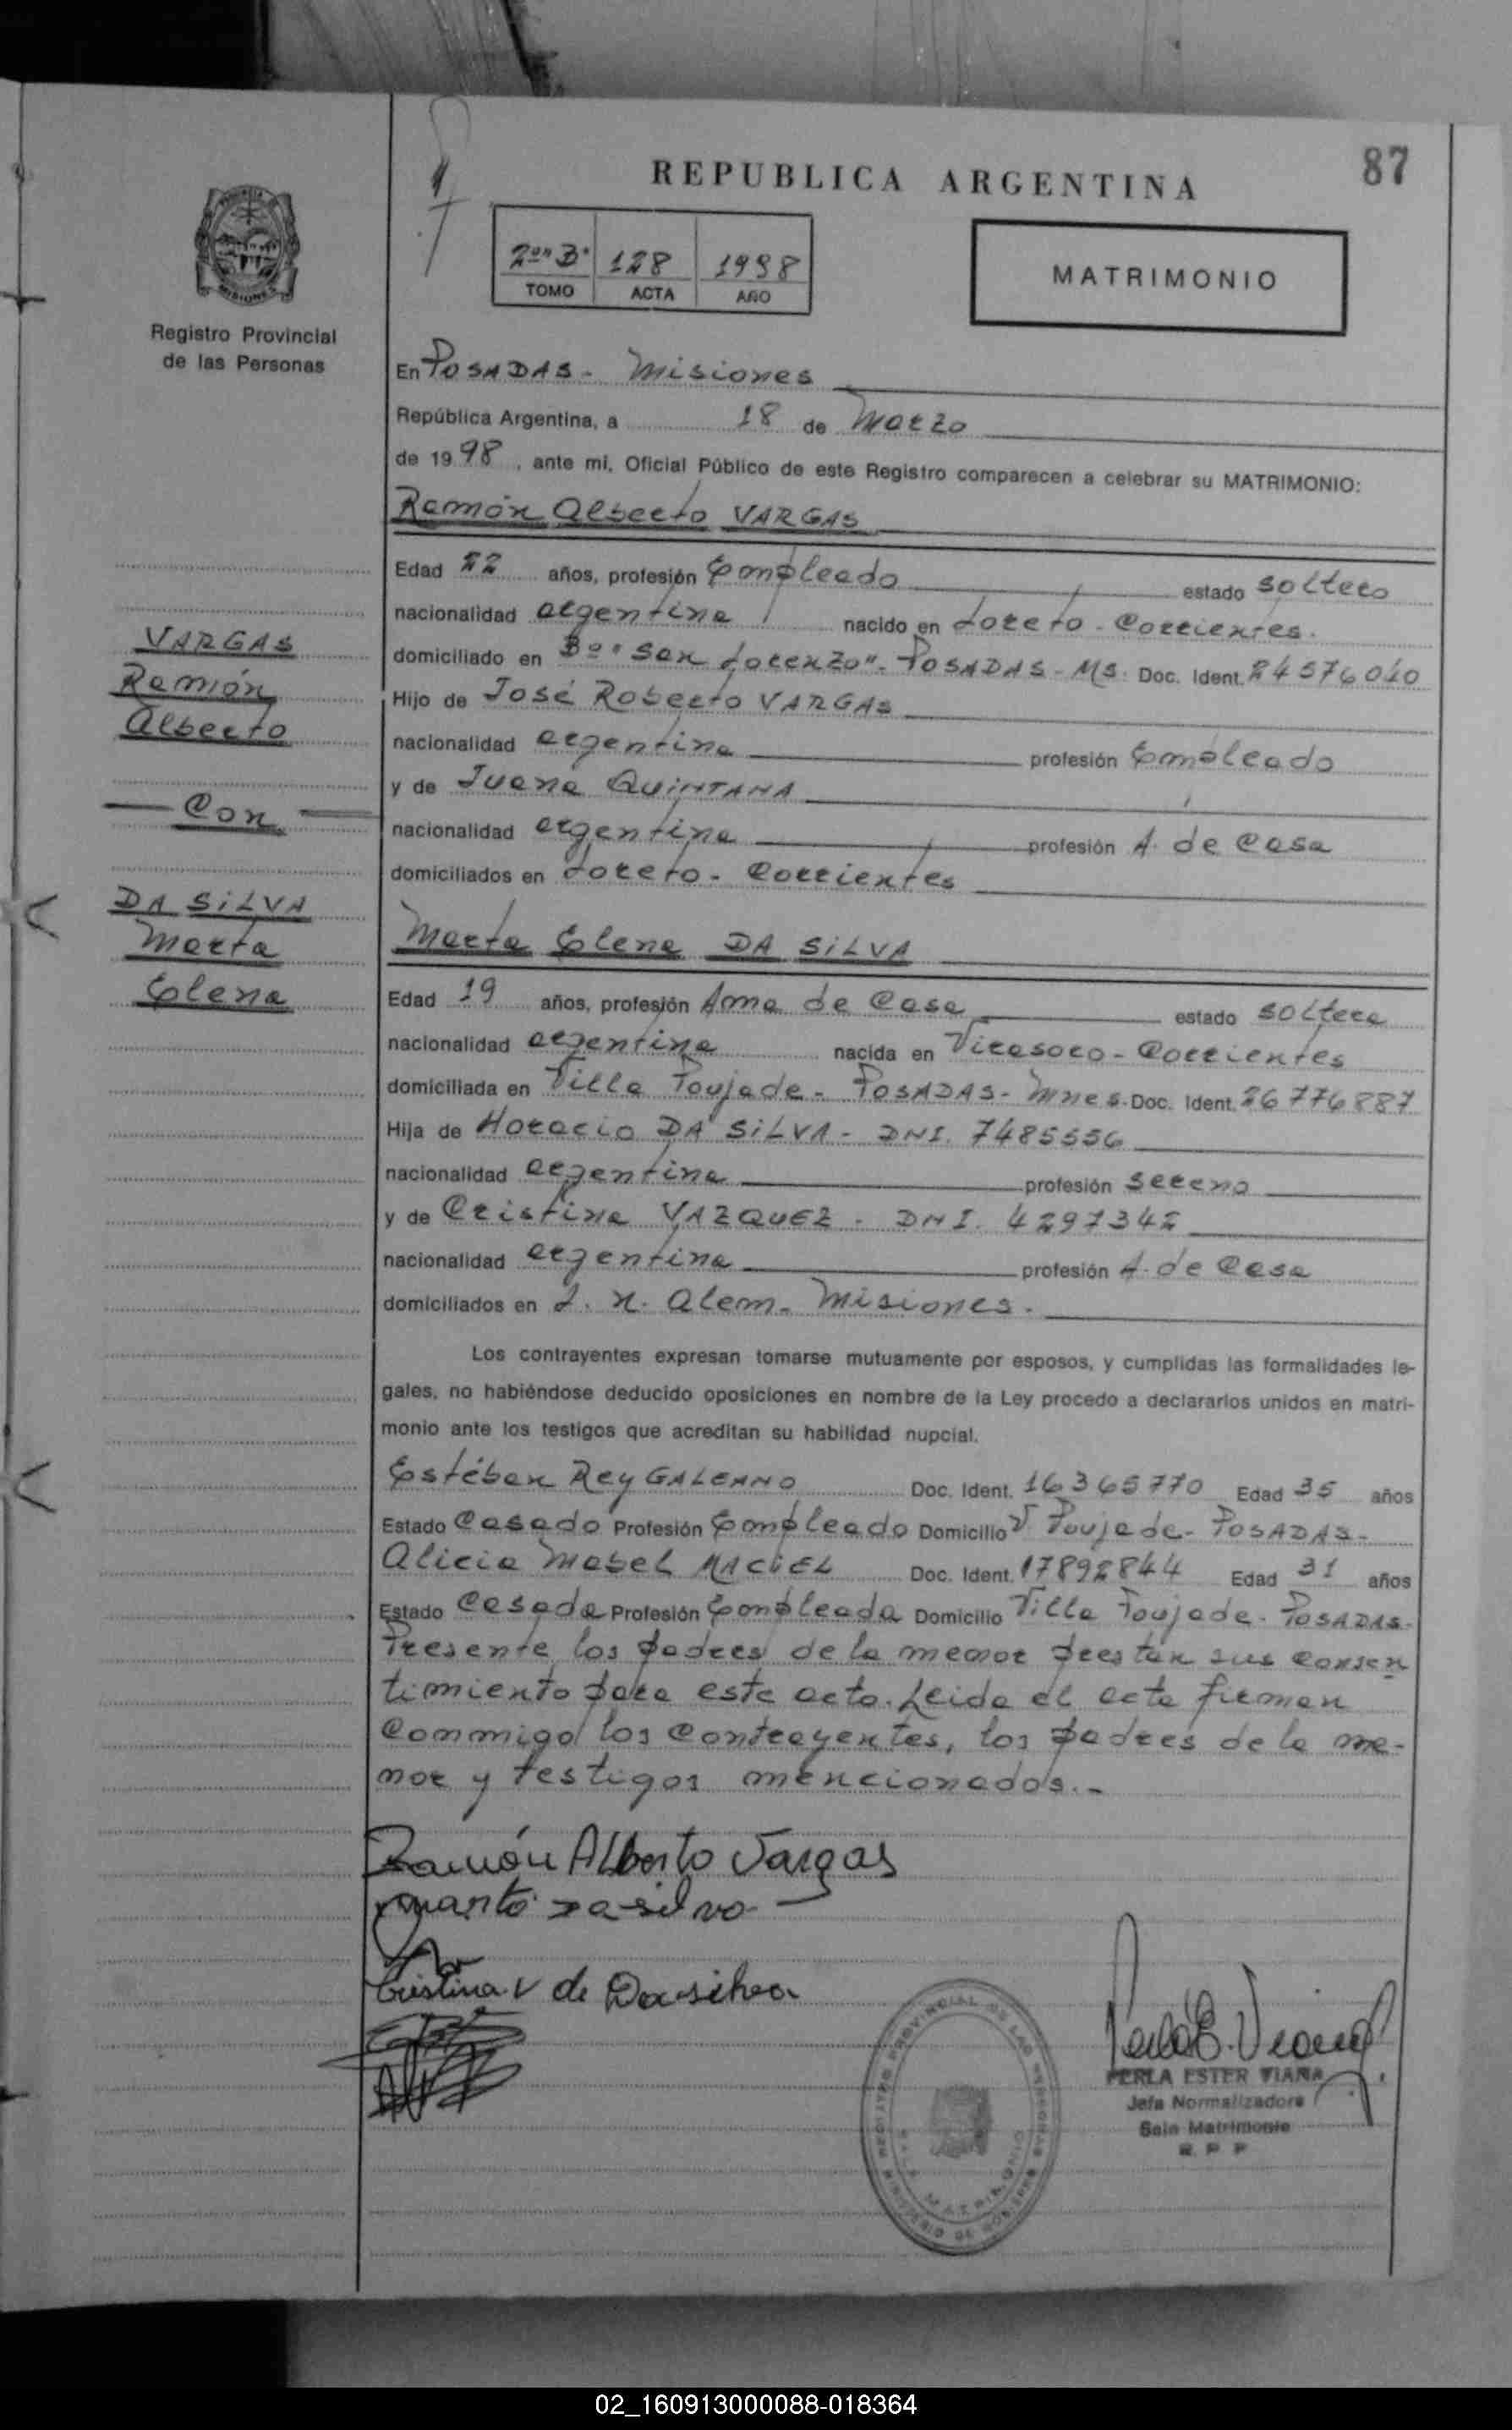 87
REPUBLICA ARGENTINA
2º "B" 128 1998
TOMO ACTA AÑO
MATRIMONIO
Registro Provincial
de las Personas
En POSADAS - Misiones
República Argentina, a 18 de Marzo
de 1998, ante mi, Oficial Público de este Registro comparecen a celebrar su MATRIMONIO:
Ramón Alberto VARGAS
Edad 22 años, profesión Empleado estado soltero
nacionalidad argentina nacido en Loreto - Corrientes.
domiciliado en Bº "San Lorenzo" - POSADAS - MS. Doc. Ident. 24576040
Hijo de José Roberto VARGAS
nacionalidad argentina profesión Empleado
y de Juana QUINTANA
nacionalidad argentina profesión A. de Casa
domiciliados en Loreto - Corrientes
VARGAS
Ramón
Alberto
Con
DA SILVA
Marta
Elena
Marta Elena DA SILVA
Edad 19 años, profesión Ama de Casa estado soltera
nacionalidad argentina nacida en Virasoro - Corrientes
domiciliada en Villa Poujade - POSADAS - Mnes. Doc. Ident. 26776887
Hija de Horacio DA SILVA - DNI. 7485556
nacionalidad argentina profesión sereno
y de Cristina VAZQUEZ - DNI. 4297342
nacionalidad argentina profesión A. de Casa
domiciliados en L. N. Alem - Misiones.
Los contrayentes expresan tomarse mutuamente por esposos, y cumplidas las formalidades le-
gales, no habiéndose deducido oposiciones en nombre de la Ley procedo a declararlos unidos en matri-
monio ante los testigos que acreditan su habilidad nupcial.
Estéban Rey GALEANO Doc. Ident. 16365770 Edad 35 años
Estado Casado Profesión Empleado Domicilio V. Poujade - POSADAS -
Alicia Mabel MACIEL Doc. Ident. 17892844 Edad 31 años
Estado Casada Profesión Empleada Domicilio Villa Poujade - POSADAS -
Presente los padres de la menor prestan sus consen
timiento para este acto. Leida el acta firman
conmigo los contrayentes, los padres de la me-
nor y testigos mencionados. -
Ramón Alberto Vargas
marta da silva
Cristina V de Da silva
Perla E. Viana
PERLA ESTER VIANA
Jefa Normalizadora
Sala Matrimonio
R. P. P
REGISTRO PROVINCIAL DE LAS PERSONAS
MINISTERIO DE GOBIERNO
SALA MATRIMONIO
02_160913000088-018364